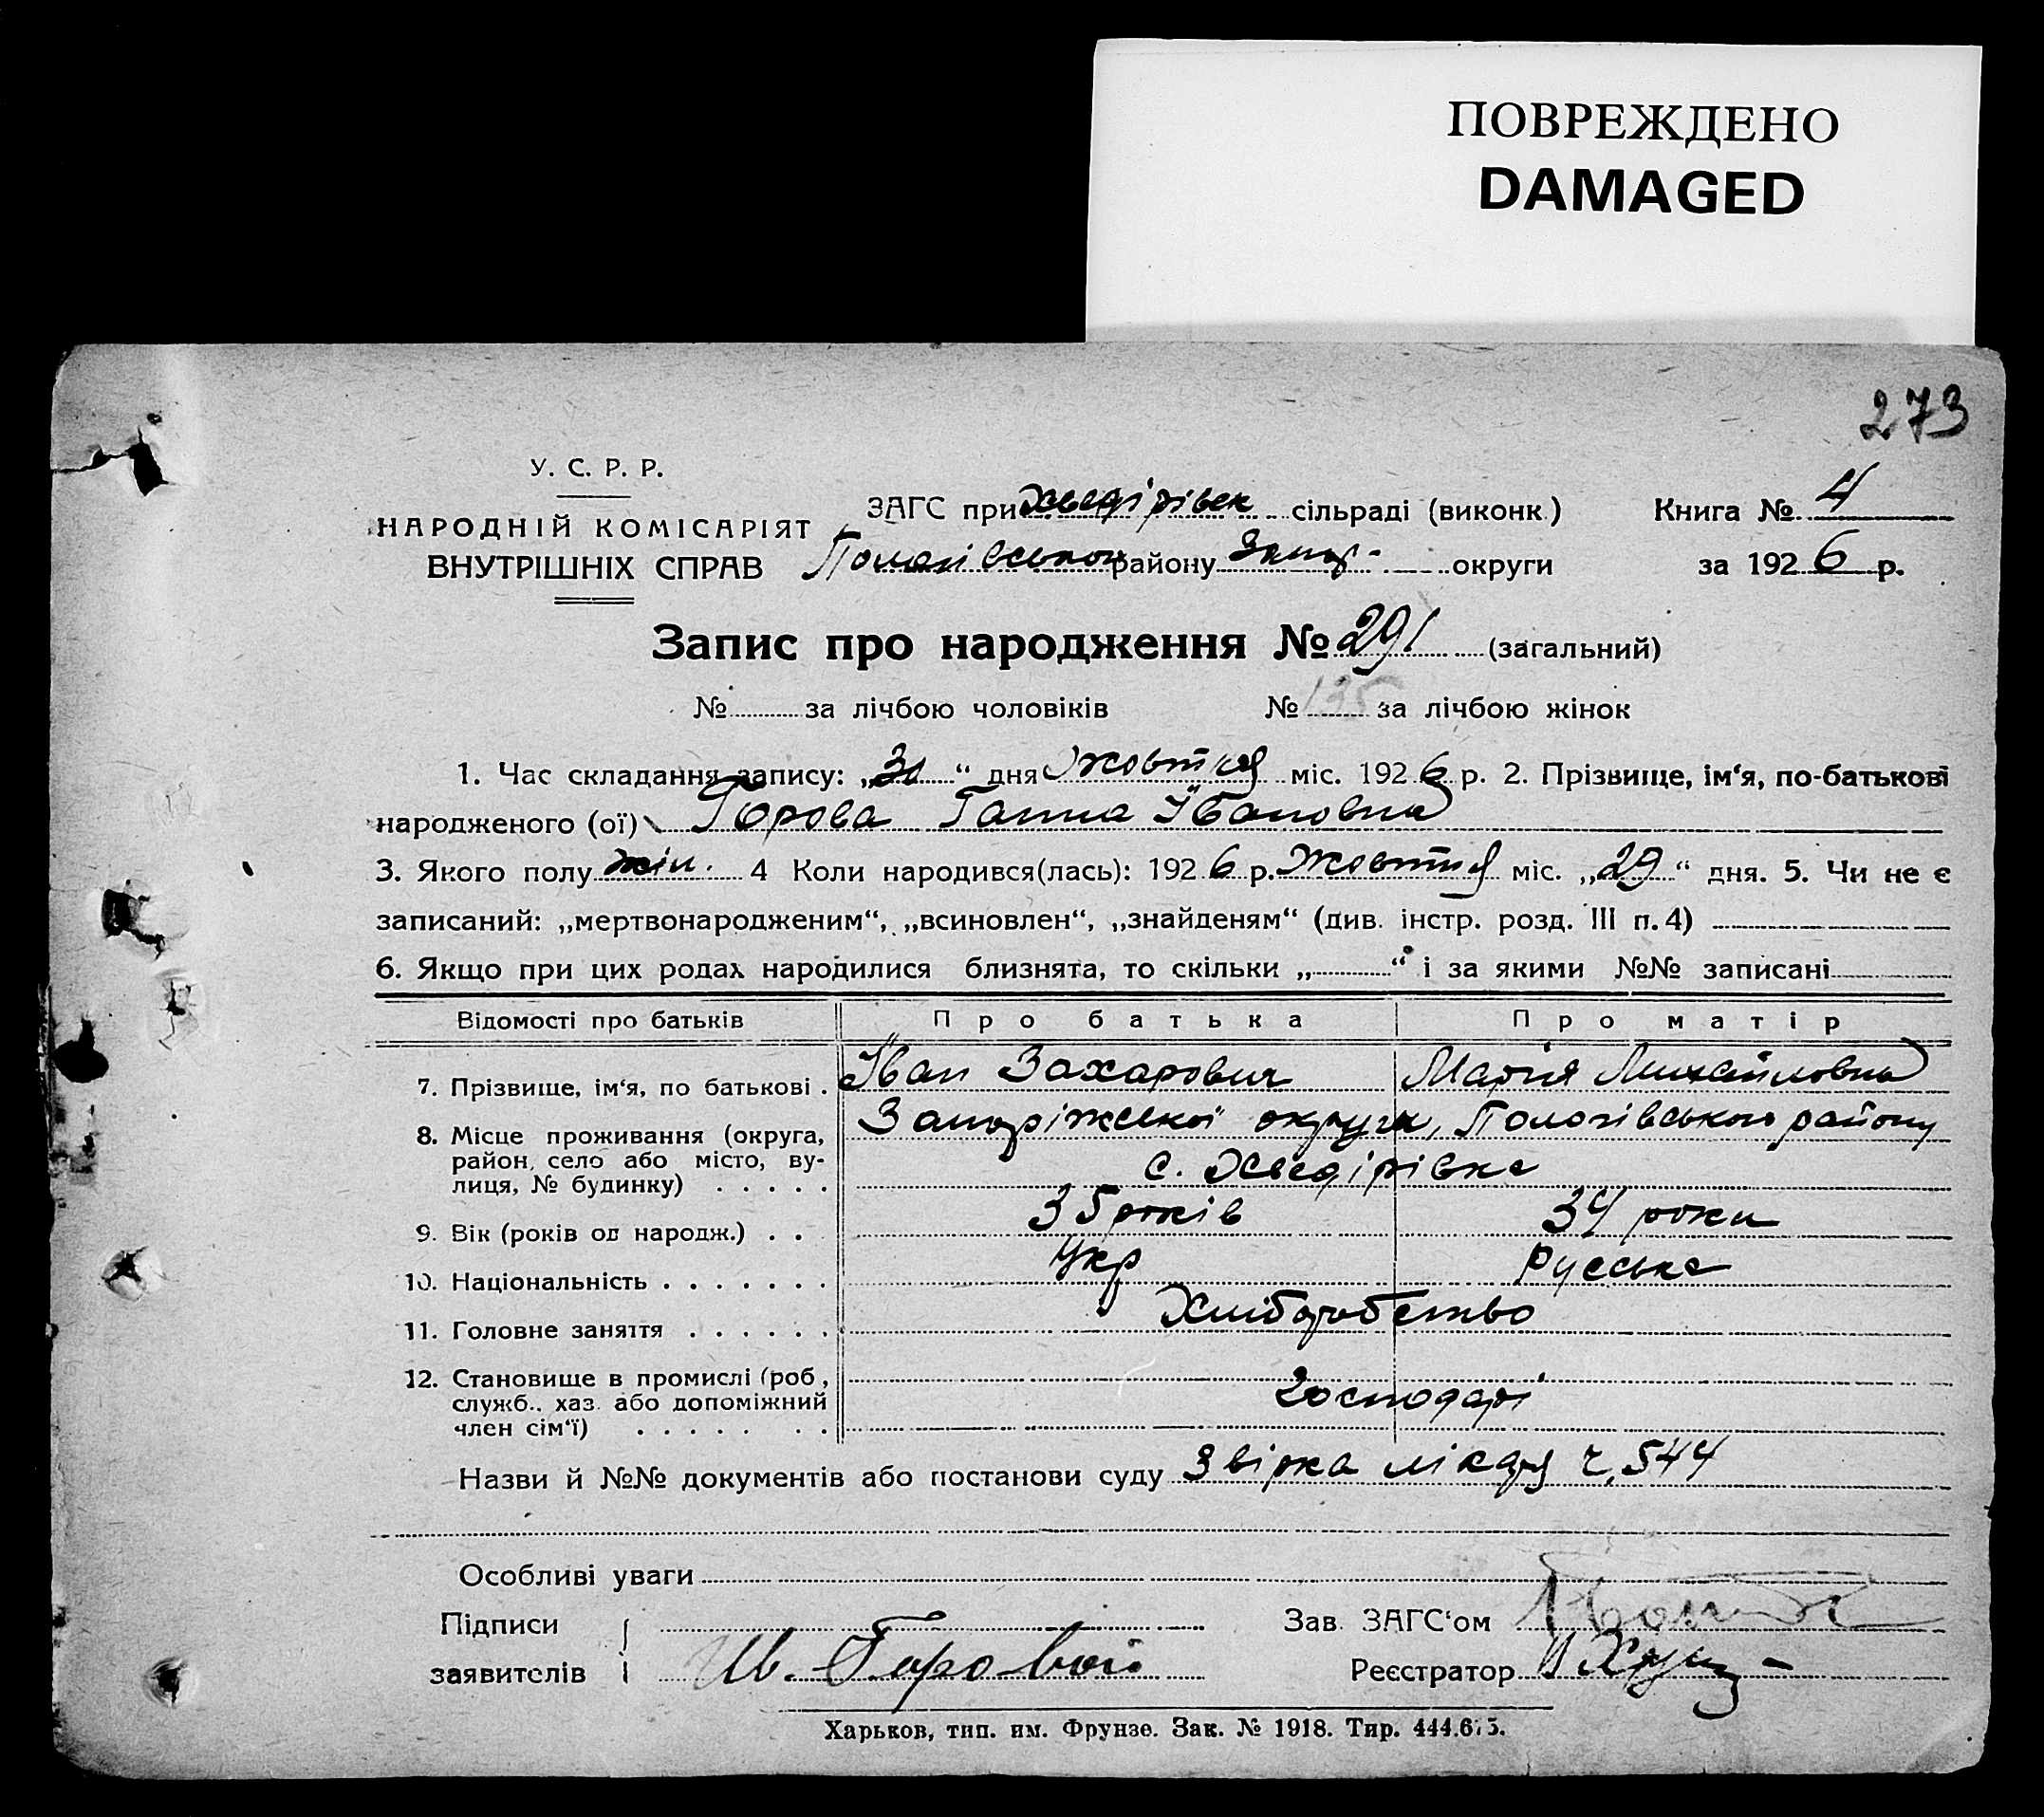 ПОВРЕЖДЕНО
DAMAGED
273
У. С. Р. Р.
НАРОДНІЙ КОМІСАРІЯТ
ВНУТРІШНІХ СПРАВ
ЗАГС при Хведірівск сільраді (виконк.) Книга № 4
Пологівського району Запор. округи за 1926 р.
Запис про народження № 291 (загальний)
№ за лічбою чоловіків № 135 за лічбою жінок
1. Час складання запису: „31“ дня жовтня міс. 1926 р. 2. Прізвище, ім‘я, по-батькові
народженого (ої) Горова Ганна Івановна
3. Якого полу жін. 4 Коли народився(лась): 1926 р. Жовтня міс. „29“ дня. 5. Чи не є
записаний: „мертвонародженим“, „всиновлен“, „знайденям“ (див. інстр. розд. III п. 4)
6. Якщо при цих родах народилися близнята, то скільки „ “ і за якими №№ записані
Відомості про батьків Про батька Про матір
7. Прізвище, ім‘я, по батькові . Іван Захарович Марія Михайловна
8. Місце проживання (округа, Запоріжської округи, Пологівського району
район, село або місто, ву- с. Хведірівка
лиця, № будинку) . . . . .
9. Вік (років од народж.) . . 35 років 34 роки
10. Національність . . . . . . . Укр Руська
11. Головне заняття . . . . . . Хліборобство
12. Становище в промислі (роб.,
служб., хаз. або допоміжний Господарі
член сім‘ї) . . . . . . .
Назви й №№ документів або постанови суду Звірка лікаря ч. 544
Особливі уваги
Підписи Зав. ЗАГС‘ом
заявителів Ив. Горовой Реєстратор
Харьков, тип. им. Фрунзе. Зак. № 1918. Тир. 444.675.